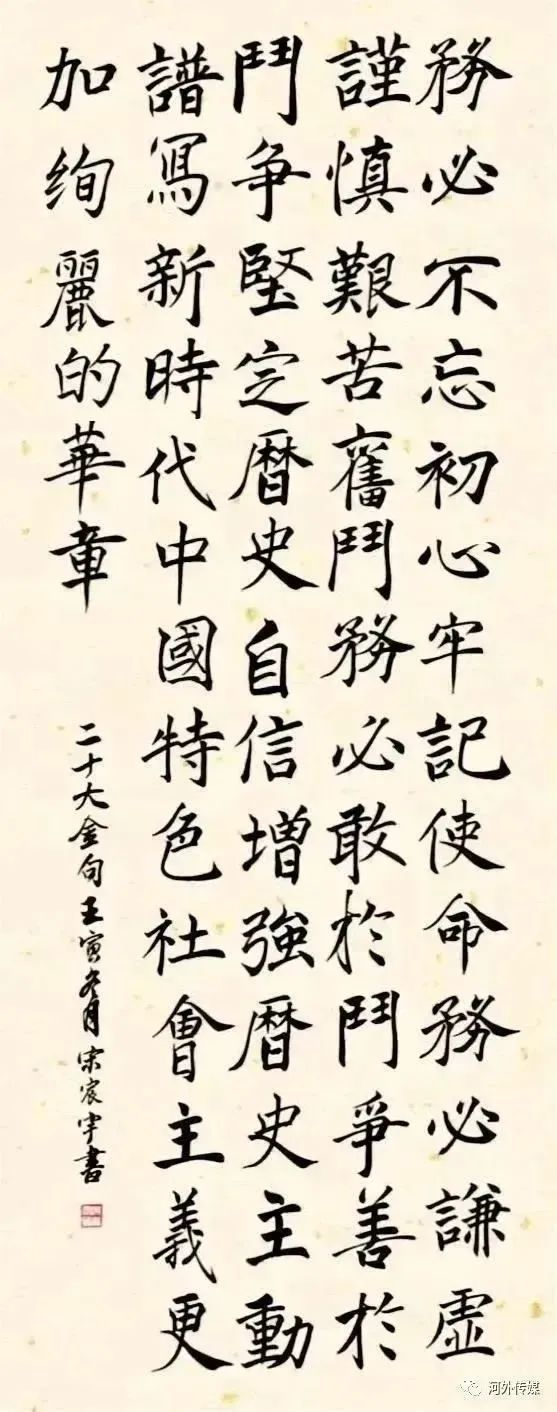 務必不忘初心牢記使命務必謙虛
謹慎艱苦奮鬥務必敢於鬥爭善於
鬥争堅定曆史自信增強曆史主動
譜寫新時代中國特色社會主義更
加绚麗的華章
二十大金句壬寅冬月宋宸宇書
河外传媒